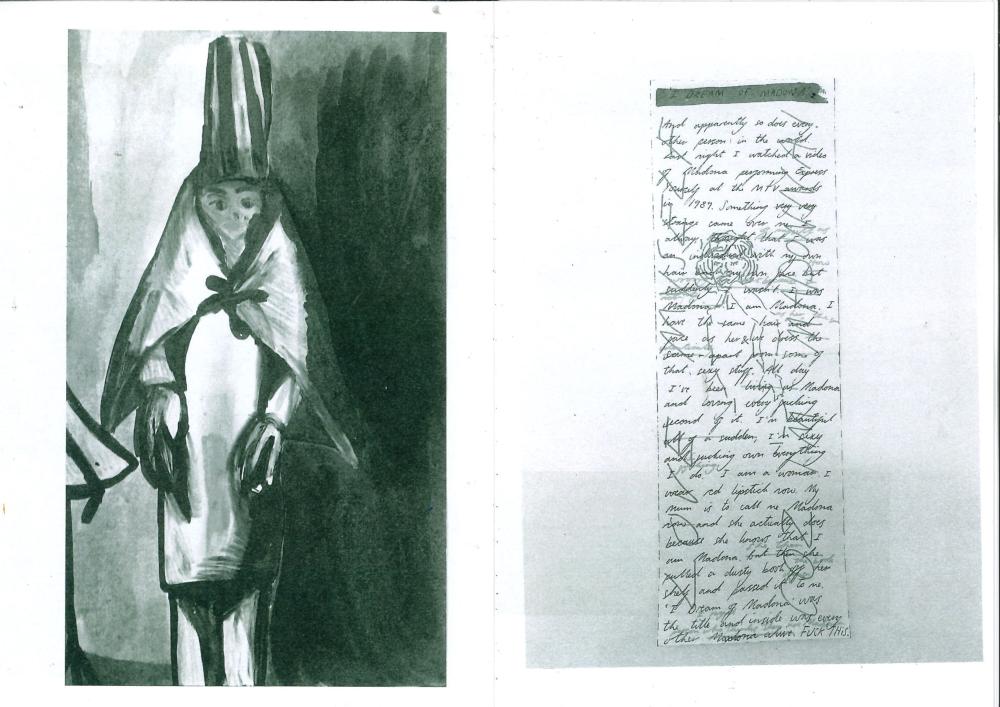 'I DREAM OF MADONA'
And apparently so does every
other person in the world.
Last night I watched a video
of Madona performing Express
Yourself at the MTV awards
in 1989. Something very very
strange came over me. I
always thought that I was
an individual with my own
hair and my own face but
suddenly I wasn't. I was
Madona. I am Madona. I
have the same hair and
face as her & we dress the
same - apart from some of
that sexy stuff. All day
I've been living as Madona
and loving every fucking
second of it. I'm beautiful
all of a sudden, I'm sexy
and fucking own everything
I do. I am a woman. I
wear red lipstick now. My
mum is to call me Madona
now and she actually does
because she knows that I
am Madona. but then she
pulled a dusty book off her
shelf and passed it to me.
'I Dream of Madona' was
the title and inside was every
other Madona alive. FUCK THIS.